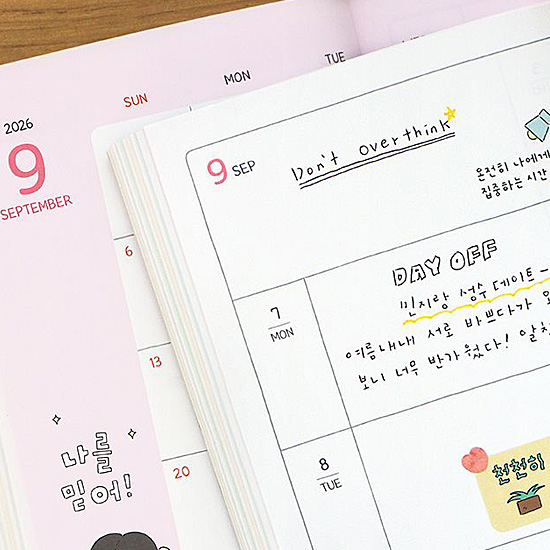 2026
9
SEPTEMBER
SUN
MON
TUE
6
13
20
나를
믿어!
9 SEP
Don't overthink
온전히 나에게
집중하는 시간
7
MON
DAY OFF
민지랑 성수 데이트~
여름내내 서로 바쁘다가 오
보니 너무 반가웠다! 알차
8
TUE
천천히